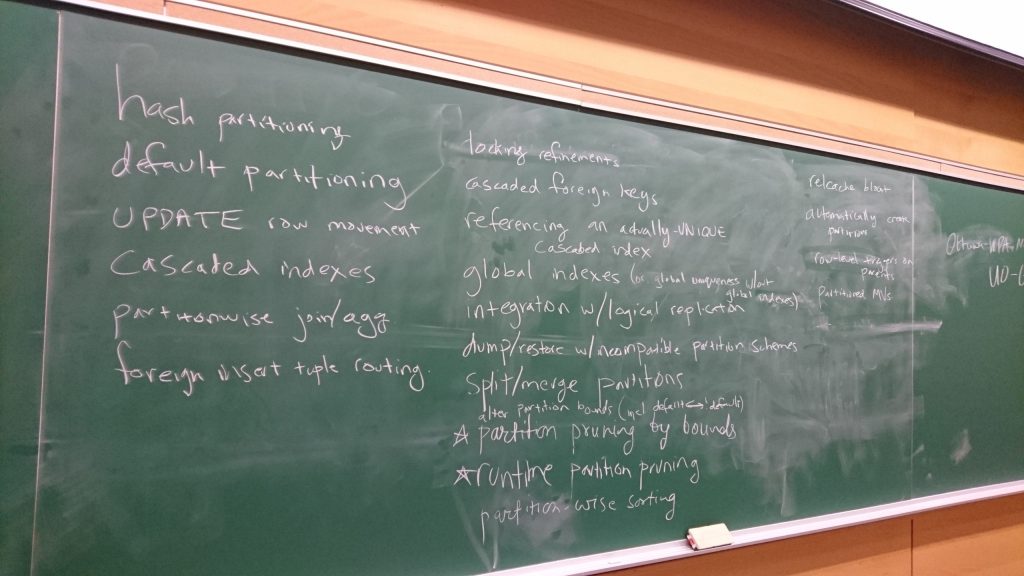 hash partitioning
default partitioning
UPDATE row movement
Cascaded indexes
partitionwise join/agg
foreign insert tuple routing
locking refinements
cascaded foreign keys
referencing an actually-UNIQUE
cascaded index
global indexes (or global uniqueness w/out
global indexes)
integration w/logical replication
dump/restore w/incompatible partition schemes
Split/merge partitions
alter partition bounds (incl default ↔ !default)
☆ partition pruning by bounds
☆ runtime partition pruning
partition-wise sorting
relcache bloat
automatically create
partitions
row-level triggers on
parents
partitioned MVs